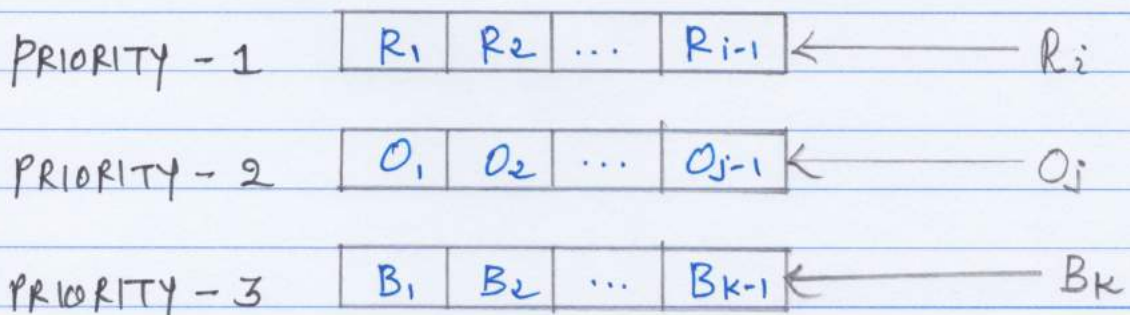 PRIORITY - 1 R1 R2 ... Ri-1 Ri
PRIORITY - 2 O1 O2 ... Oj-1 Oj
PRIORITY - 3 B1 B2 ... BK-1 BK